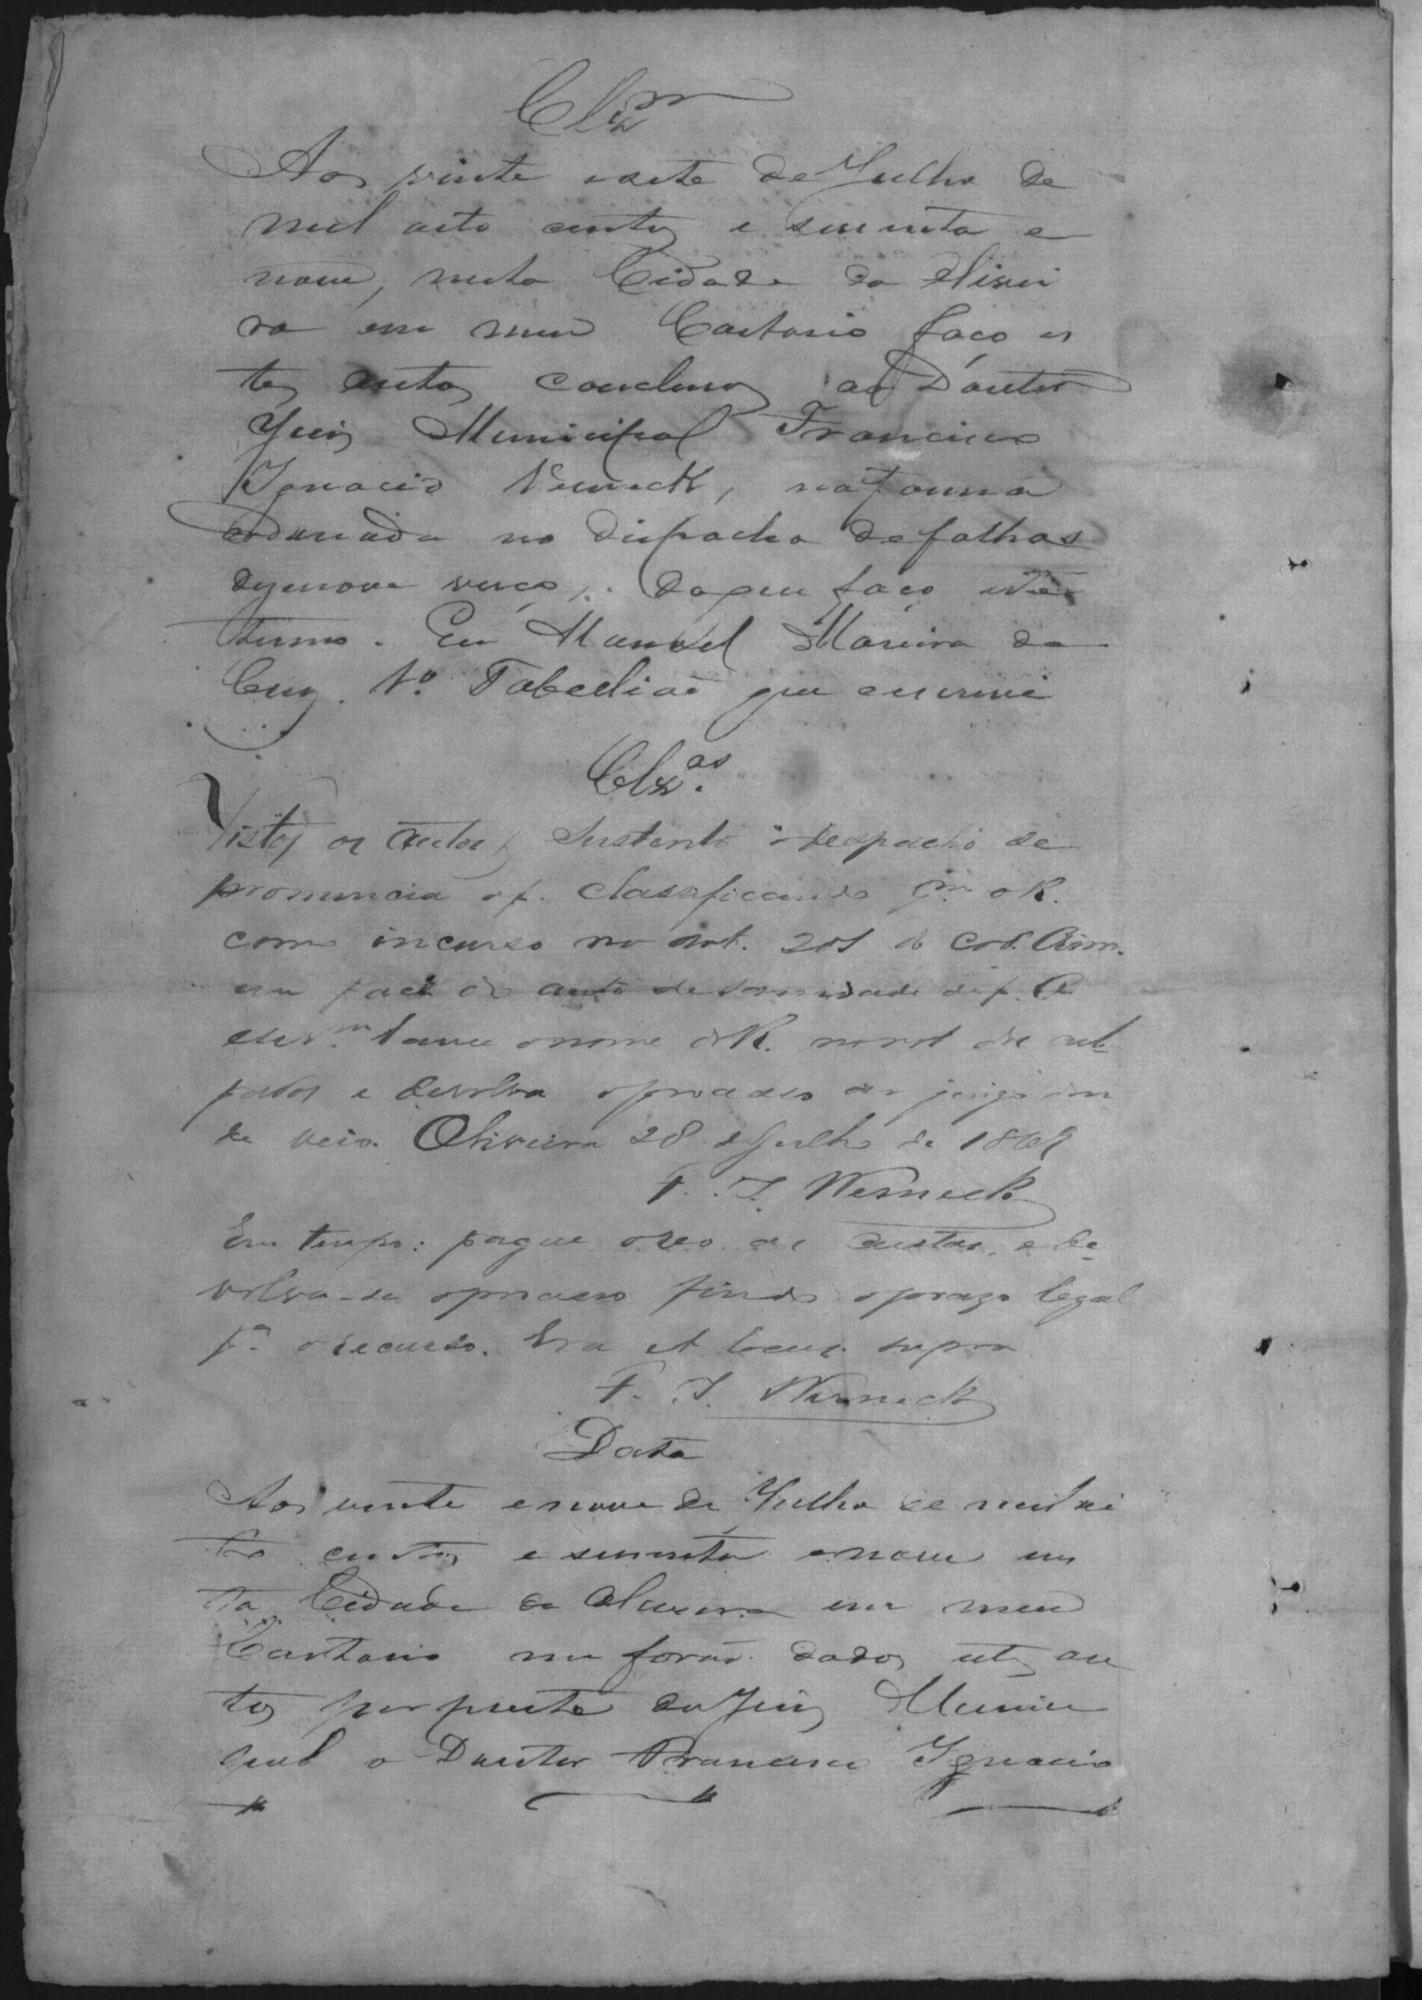 Clzm
Aos vinte esete de Julho de
mil oito centos e secenta e
nove, nesta Cidade da Olivei
ra em meu Cartorio faço es
tes autos concluzos ao Doutor
Juis Municipal Francisco
Ignacio Werneck, na forma
ordenada no dispacho de folhas
dezenove verço, do que faço este
termo. Eu Manoel Moreira da
Cruz 1º. Tabeliaõ que escrevi
Clzos.
Vistos os autos, sustento o despacho de
pronuncia af. classificando pm. o R.
como incurso no art. 201 do Cod. Crim.
em face do auto de sanidade def. O
escrm. lance o nome do R. no rol dos cul-
pados e devolva o processo ao juizo don
de veio. Oliveira 28 de Julho de 1869
F. I. Werneck
Em tempo: pague o reo as custas, e de-
volva-se o processo findo o prazo legal
pa. o recurso. Era et locus supra
F. I. Werneck
Data
Aos vinte enove de Julho de mil oi
to centos e secenta enove nes
ta Cidade da Oliveira em meu
Cartorio me foraõ dados estes au
tos por parte do Juis Munici
pal o Doutor Francisco Ignacio